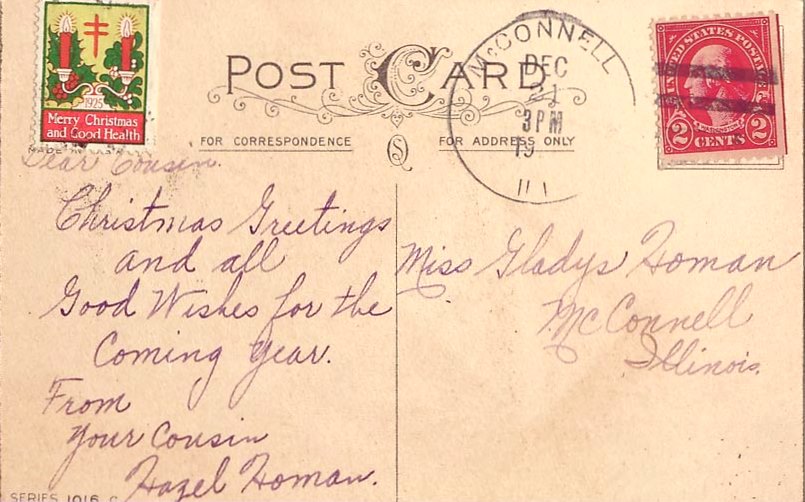 1925
Merry Christmas
and Good Health
POST CARD
FOR CORRESPONDENCE
FOR ADDRESS ONLY
McCONNELL
DEC
21
3 PM
19
ILL
UNITED STATES POSTAGE
WASHINGTON
2 CENTS 2
Dear Cousin.
Christmas Greetings
and all
Good Wishes for the
Coming Year.
From
Your Cousin
Hazel Homan.
Miss Gladys Homan
McConnell
Illinois.
SERIES 1016 C